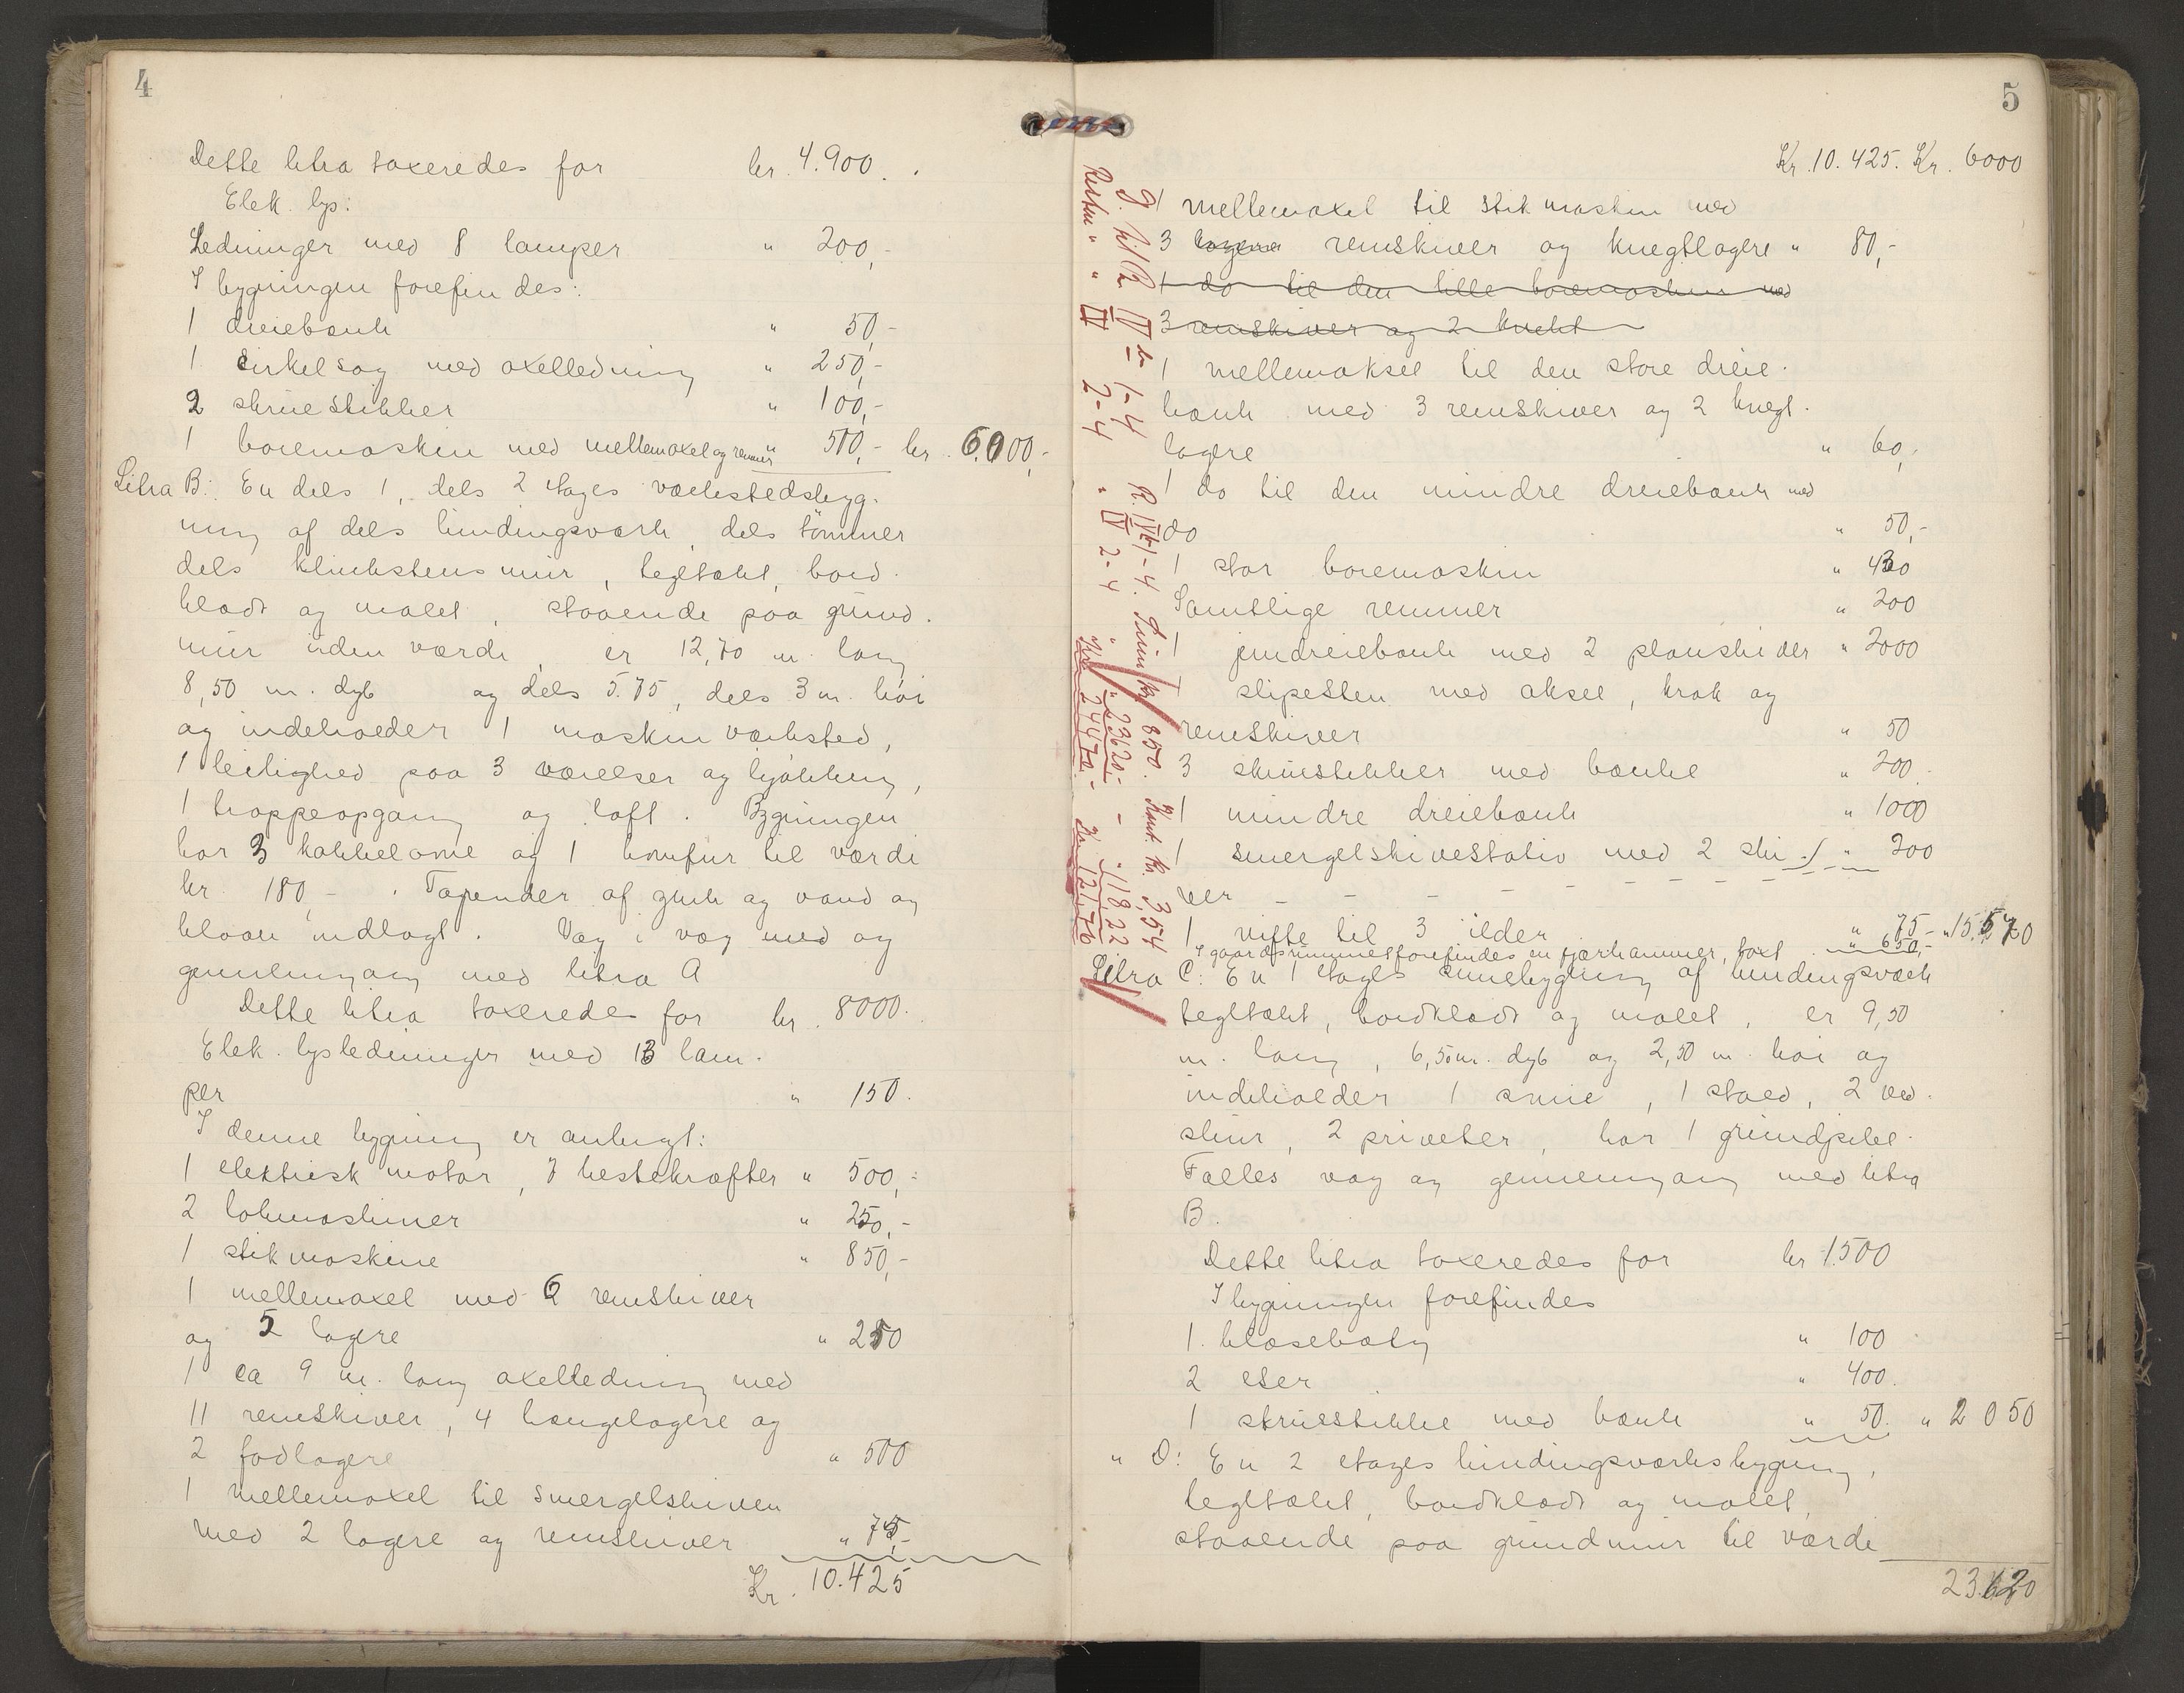 4
Dette litra taxeredes for kr. 4.900.
Elek. lys:
Ledninger med 8 lamper " 200,-
I bygningen forefindes:
1 dreiebænk " 50,-
1 Cirkelsag med axelledning " 250,-
2 skruestikker " 100,-
1 boremaskin med mellemaxel og remmer " 500,- kr. 6.000,-
Litra B: En dels 1, dels 2 etages værkstedsbyg-
ning af dels bindingsværk, dels tømmer
dels klinkstensmur, tegltækt, bord-
klædt og malet, staaende paa grund-
mur uden værdi, er 12,70 m. lang
8,50 m. dyb og dels 5.75, dels 3 m. høi
og indeholder 1 maskinværksted,
1 leilighed paa 3 værelser og kjøkken,
1 trappeopgang og loft. Bygningen
har 3 kakkelovne og 1 komfur til værdi
kr. 180,-. Tapender af gruk og vand og
kloak indlagt. Væg i væg med og
gennemgang med litra A
Dette litra taxeredes for kr. 8000.
Elek. lysledninger med 13 lam-
per " 150.
I denne bygning er anbragt:
1 elektrisk motor, 7 hestekræfter " 500,-
2 lokmaskiner " 250,-
1 stikmaskine " 850,-
1 mellemaxel med 6 remskiver
og 5 lagere " 250
1 ca 9 m. lang axelledning med
11 remskiver, 4 hængelagere og
2 fodlagere " 500
1 mellemaxel til smergelskiven
med 2 lagere og remskiver " 75,-
Kr. 10.425
5
Kr. 10.425. Kr. 6000
1 mellemaxel til stikmaskin med
3 lagere remskiver og knegtlagere " 80,-
1 do til den lille boremaskin med
3 remskiver og 2 knekt
1 mellemaksel til den store dreie-
bænk med 3 remskiver og 2 knegt-
lagere " 60,-
1 do til den mindre dreiebænk med
do " 50,-
1 stor boremaskin " 400
Samtlige remmer " 200
1 jerndreiebænk med 2 planskider " 2000
1 slipesten med aksel, krak og
remskiver " 50
3 skruestikker med bænke " 200.
1 mindre dreiebænk " 1000
1 smergelskivestativ med 2 ski- " 200
ver
1 vifte til 3 ilder " 75,- " 15.570
I gaardsrummet forefindes en fjærhammer, taxt " 650,-
Litra C: En 1 etages smiebygning af bindingsværk
tegltækt, bordklædt og malet, er 9,50
m. lang, 6,50 m. dyb og 2,50 m. høi og
indeholder 1 smie, 1 stald, 2 ved-
skur, 2 priveter, har 1 grundpibe.
Fælles væg og gennemgang med litra
B.
Dette litra taxeredes for kr 1500
I bygningen forefindes
1 blæsebælg " 100
2 eser " 400.
1 skruestikke med bænk " 50. " 2 050
" D: En 2 etages bindingsværksbygning,
tegltækt, bordklædt og malet,
staaende paa grundmur til værdi
23.620
R. IVb 1-4.
850.
354
Resten " " III 2-4 " IV 2-4
" 23620.- - " 118.22
Kr. 24470.- Kr. 121.76